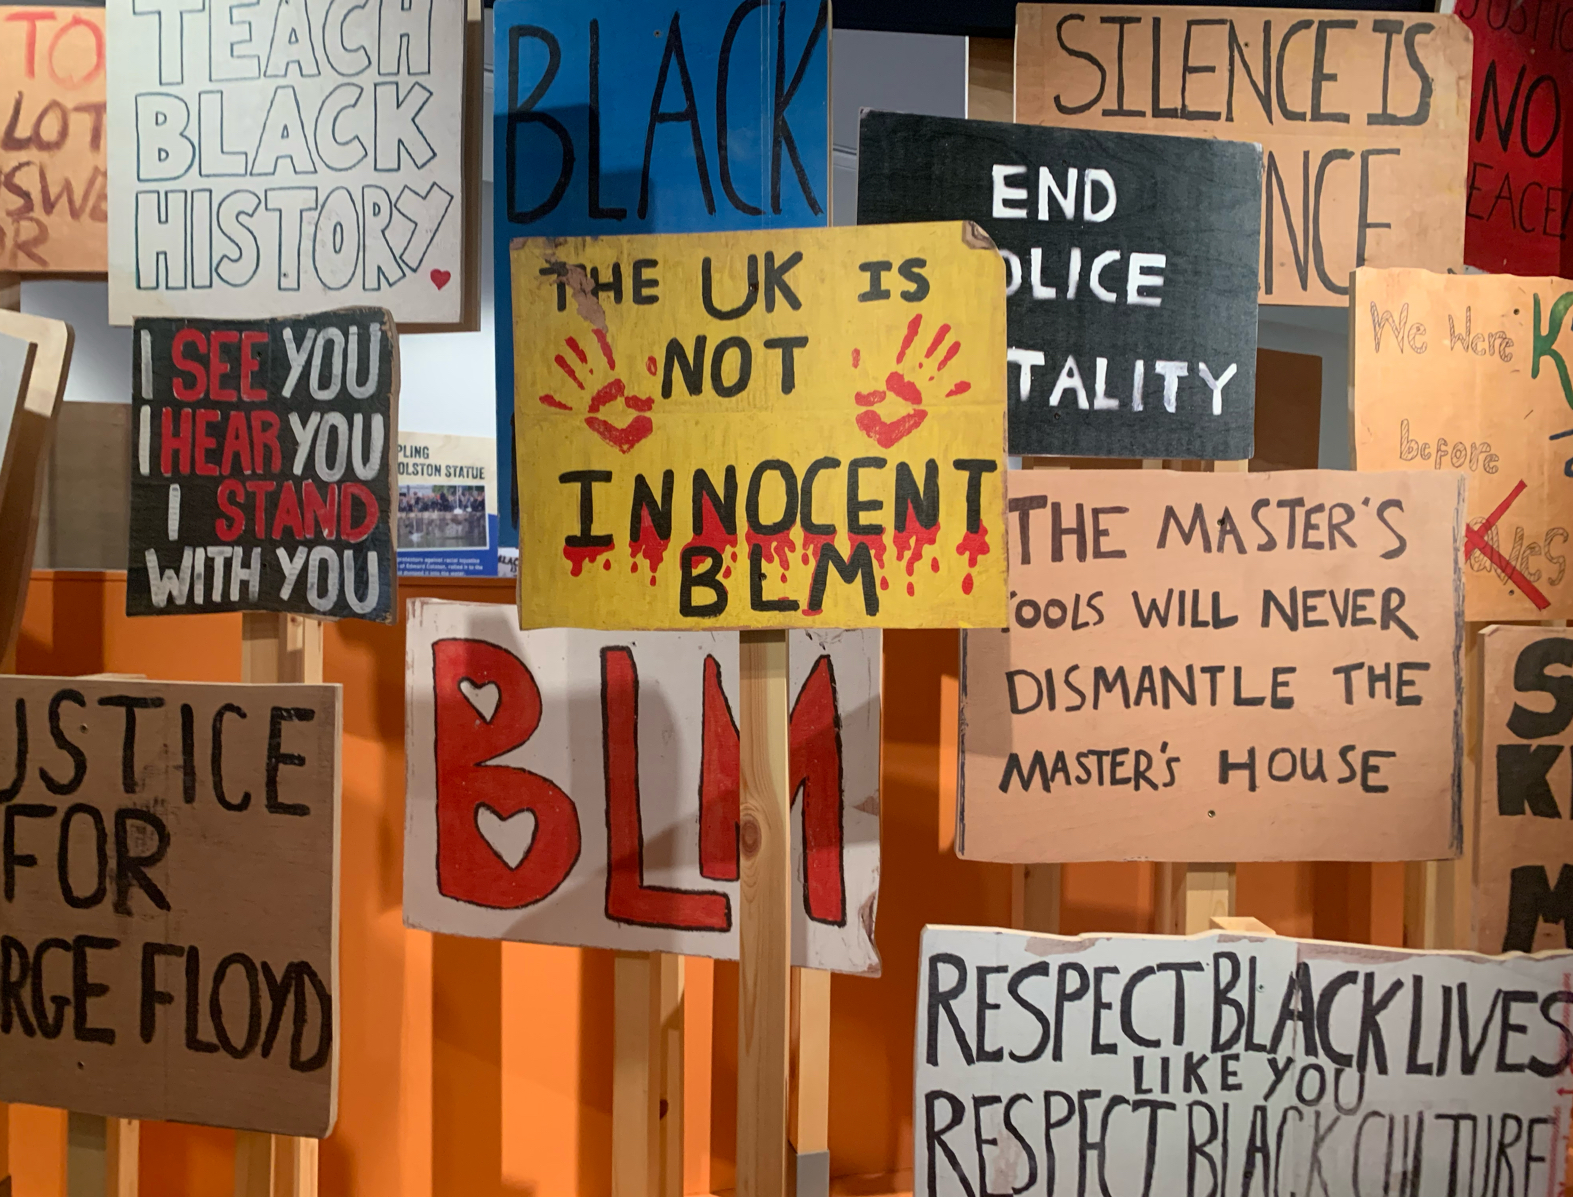 TO
LOT
TEACH
BLACK
HISTORY
BLACK
SILENCE IS
NO
END
OLICE
TALITY
THE UK IS
NOT
INNOCENT
BLM
We Were
before
I SEE YOU
I HEAR YOU
I STAND
WITH YOU
PLING
OLSTON STATUE
THE MASTER'S
OOLS WILL NEVER
DISMANTLE THE
MASTER'S HOUSE
BLM
USTICE
FOR
RGE FLOYD
RESPECT BLACK LIVES
LIKE YOU
RESPECT BLACK CULTURE